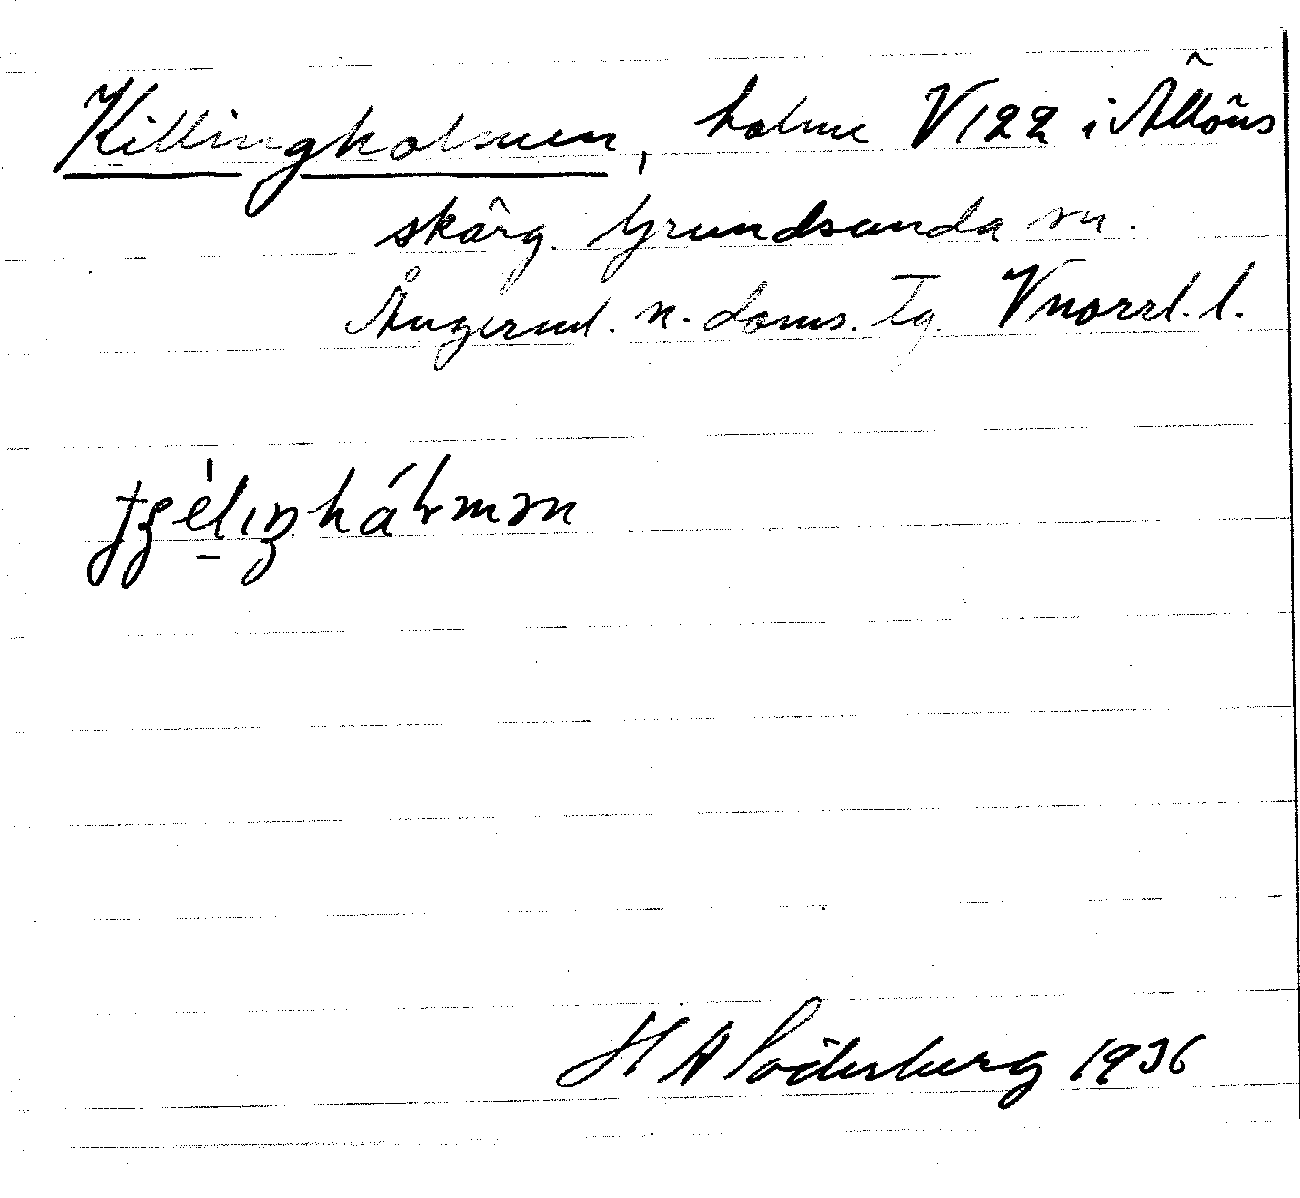 Killingholmen, holme V122 i Ällöns
skärg. Grundsunda sn.
Ångerml. n. doms. Tg. Vnorrl. l.
H A Söderberg 1936